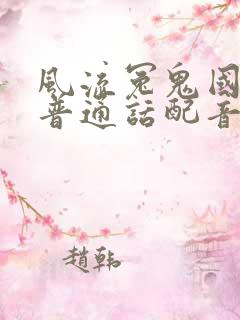 風流冤鬼國
普通話配音
趙韩